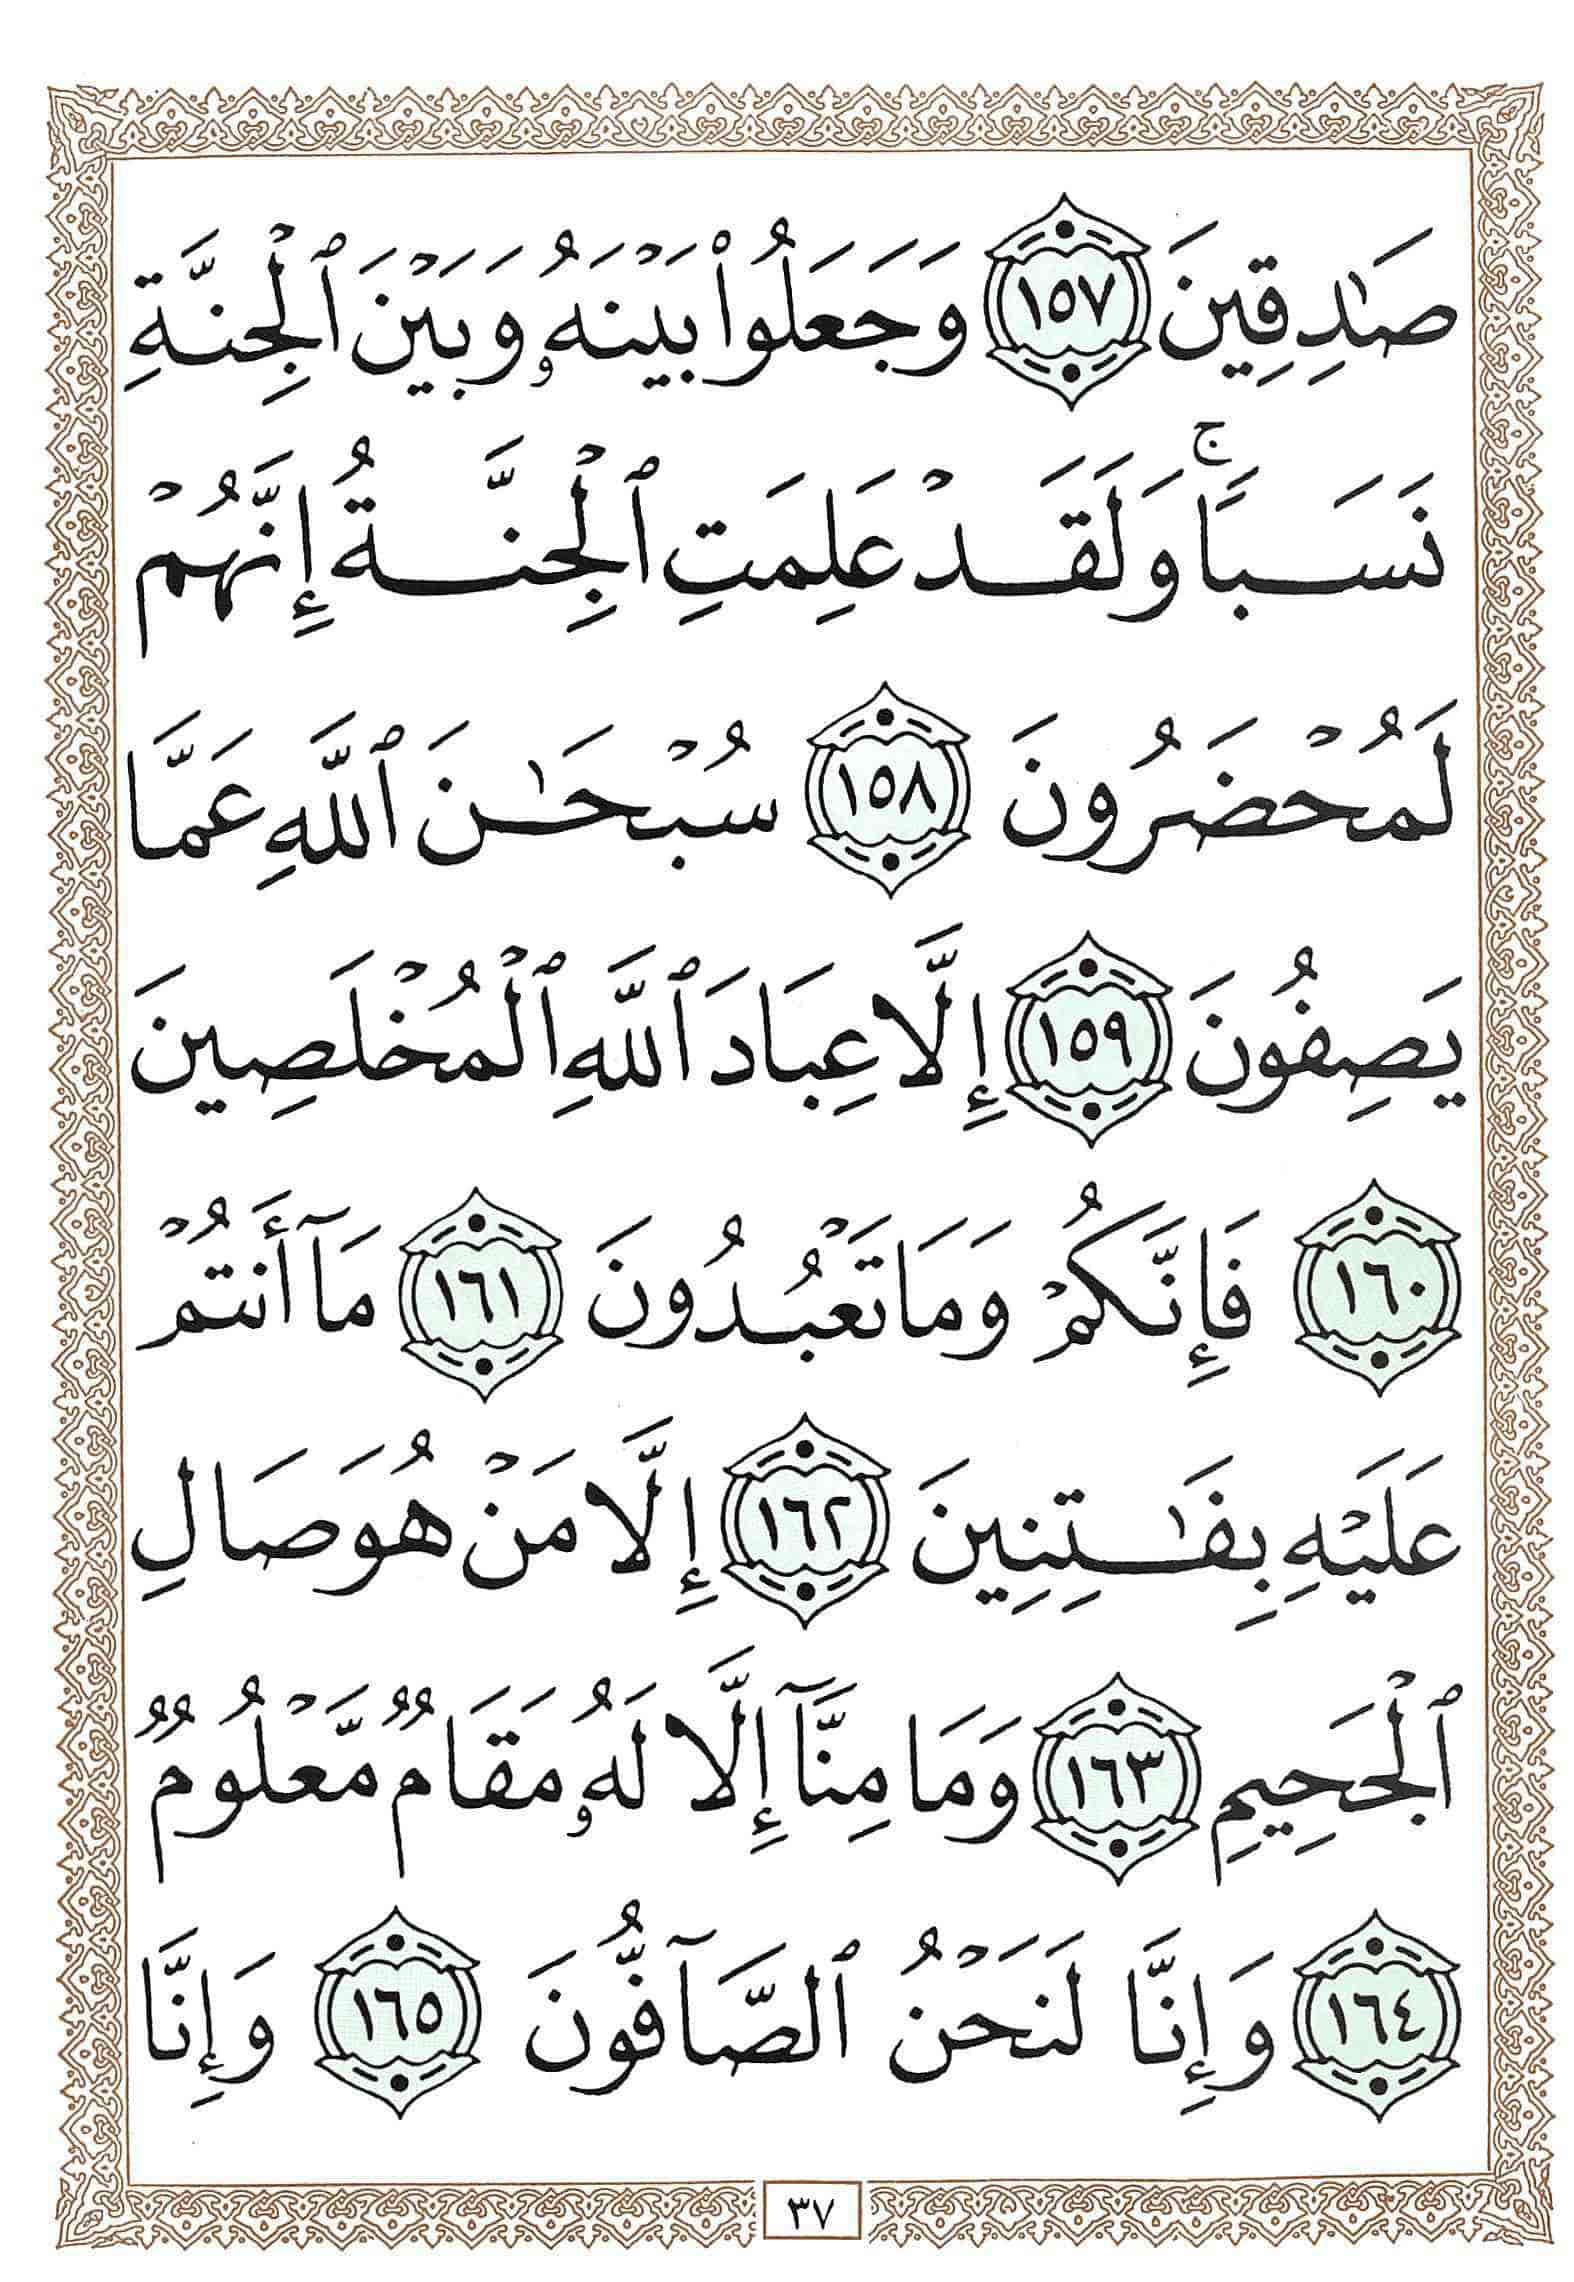 صَٰدِقِينَ ١٥٧ وَجَعَلُوا۟ بَيْنَهُۥ وَبَيْنَ ٱلْجِنَّةِ
نَسَبًا ۚ وَلَقَدْ عَلِمَتِ ٱلْجِنَّةُ إِنَّهُمْ
لَمُحْضَرُونَ ١٥٨ سُبْحَٰنَ ٱللَّهِ عَمَّا
يَصِفُونَ ١٥٩ إِلَّا عِبَادَ ٱللَّهِ ٱلْمُخْلَصِينَ
١٦٠ فَإِنَّكُمْ وَمَا تَعْبُدُونَ ١٦١ مَآ أَنتُمْ
عَلَيْهِ بِفَٰتِنِينَ ١٦٢ إِلَّا مَنْ هُوَ صَالِ
ٱلْجَحِيمِ ١٦٣ وَمَا مِنَّآ إِلَّا لَهُۥ مَقَامٌ مَّعْلُومٌ
١٦٤ وَإِنَّا لَنَحْنُ ٱلصَّآفُّونَ ١٦٥ وَإِنَّا
٣٧